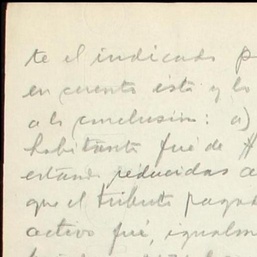 te el indicado p
en cuenta esta y lo
a la conclusión: a)
habitante fué de #
estando reducidas a
que el tributo pagad
activo fué, igualm